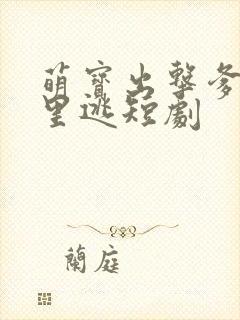 萌寶出擊爹
里逃短劇
蘭庭